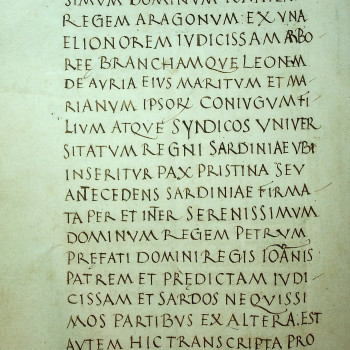 SIMUM DOMINUM IOANNEM
REGEM ARAGONUM: EX UNA
ELIONOREM IUDICISSAM ARBO
REE BRANCHAMQUE LEONEM
DE AURIA EIUS MARITUM ET MA
RIANUM IPSOR CONIUGUM FI
LIUM ATQUE SYNDICOS UNIVER
SITATUM REGNI SARDINIAE UBI
INSERITUR PAX PRISTINA SEU
ANTECEDENS SARDINIAE FIRMA
TA PER ET INTER SERENISSIMUM
DOMINUM REGEM PETRUM
PREFATI DOMINI REGIS IOANIS
PATREM ET PREDICTAM IUDI
CISSAM ET SARDOS NEQUISSI
MOS PARTIBUS EX ALTERA: EST
AUTEM HIC TRANSCRIPTA PRO